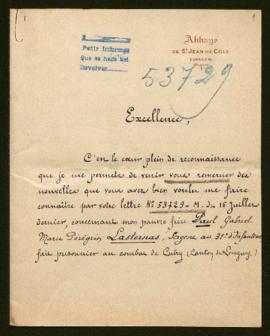 Abbaye
DE St JEAN DE COLE
Petit Informe
que se hace así
53729
Excellence,
C'est le cœur plein de reconnaissance
que je me permets de venir vous remercier des
nouvelles que vous avez bien voulu me faire
connaître par votre lettre No 53729 - M. du 15 juillet
dernier, concernant mon pauvre frère Paul Gabriel
Marie Lasternas, Sergent au 31e d'Infanterie
fait prisonnier au combat de Cutry (Canton de Longwy)